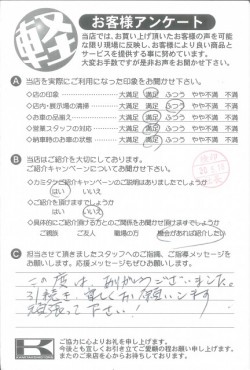 軽
お客様アンケート
当店では、お買い上げ頂いたお客様の声を可能
な限り現場に反映し、お客様により良い商品と
サービスを提供する事に努めています。
大変お手数ですが是非お声をお聞かせ下さい。
A 当店を実際にご利用になった印象をお聞かせ下さい。
◇店の印象 大満足 満足 ふつう やや不満 不満
◇店内・展示場の清掃 大満足 満足 ふつう やや不満 不満
◇お車の品揃え 大満足 満足 ふつう やや不満 不満
◇営業スタッフの対応 大満足 満足 ふつう やや不満 不満
◇納車時のお車の状態 大満足 満足 ふつう やや不満 不満
B 当店はご紹介を大切にしております。
ご紹介キャンペーンについてお聞かせ下さい
◇カミタケご紹介キャンペーンのご説明はありましたでしょうか
はい いいえ
◇ご紹介を頂けますでしょうか
はい いいえ
◇具体的にご紹介頂ける方とのご関係をお聞かせ頂けますでしょうか
ご親族 ご友人 職場の方 機会があれば紹介したい
C 担当させて頂きましたスタッフへのご指摘、ご指導メッセージを
お願いします。応援メッセージもぜひお願いします。
この度は、ありがとうございました。
引続き、宜しくお願いします
頑張って下さい!
K
ご協力に心よりお礼を申し上げます。
今後とも宜しくお引き立てご愛顧の程お願い申し上げます。
またのご来店を心からお待ちしております。